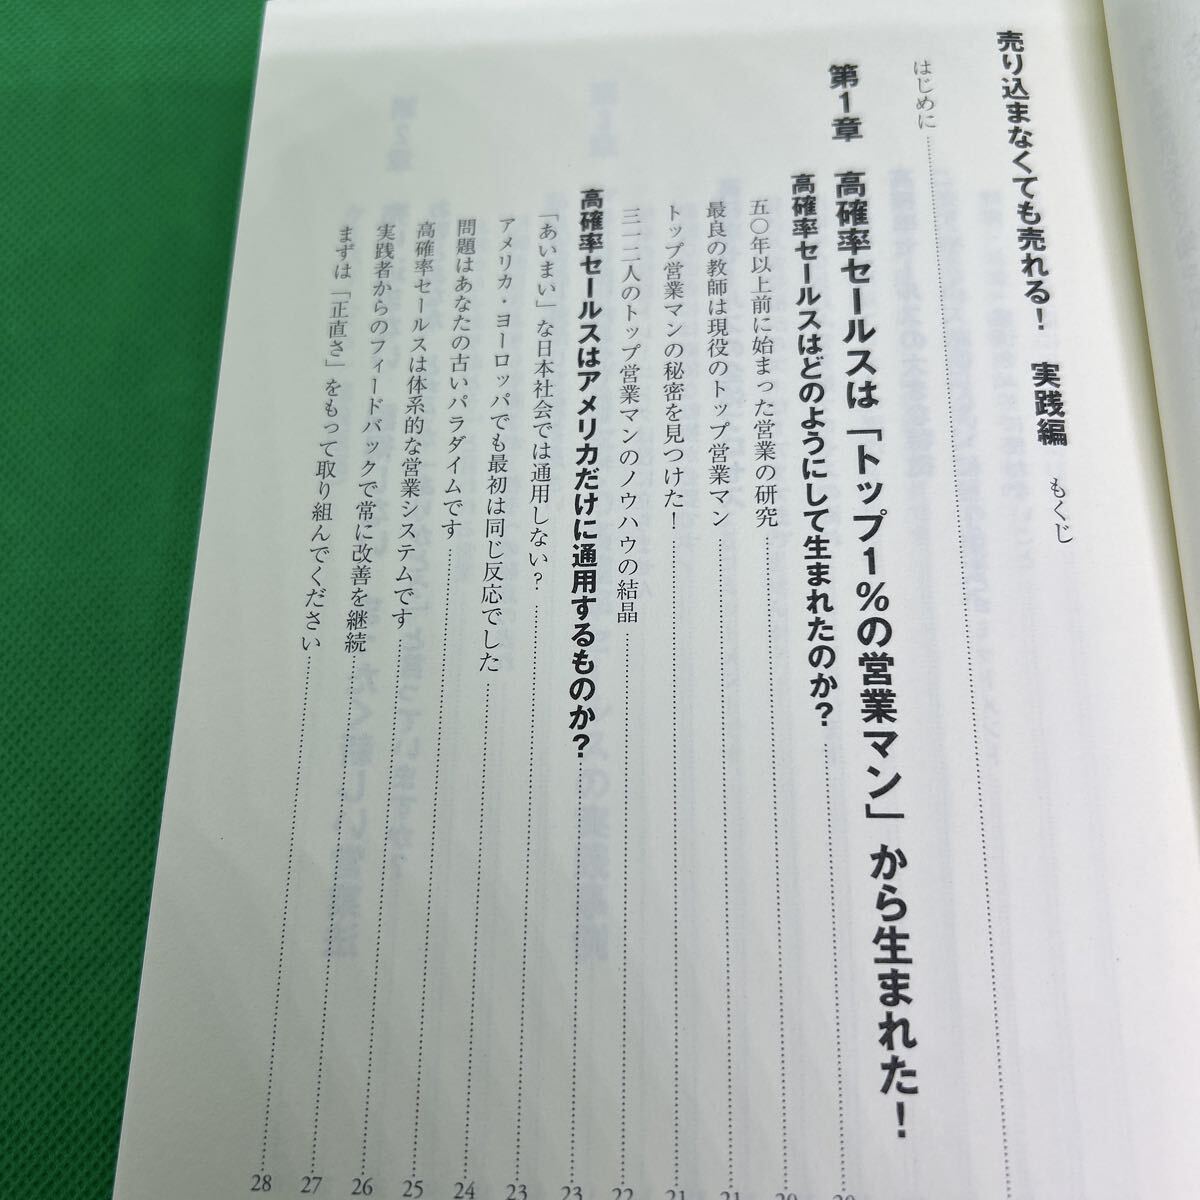 売り込まなくても売れる！ 実践編 もくじ
はじめに
第1章 高確率セールスは「トップ1％の営業マン」から生まれた！
高確率セールスはどのようにして生まれたのか？ 20
五〇年以上前に始まった営業の研究 20
最良の教師は現役のトップ営業マン 21
トップ営業マンの秘密を見つけた！ 21
三一二人のトップ営業マンのノウハウの結晶 22
高確率セールスはアメリカだけに通用するものか？ 23
「あいまい」な日本社会では通用しない？ 23
アメリカ・ヨーロッパでも最初は同じ反応でした 24
問題はあなたの古いパラダイムです 25
高確率セールスは体系的な営業システムです 26
実践者からのフィードバックで常に改善を継続 27
まずは「正直さ」をもって取り組んでください 28